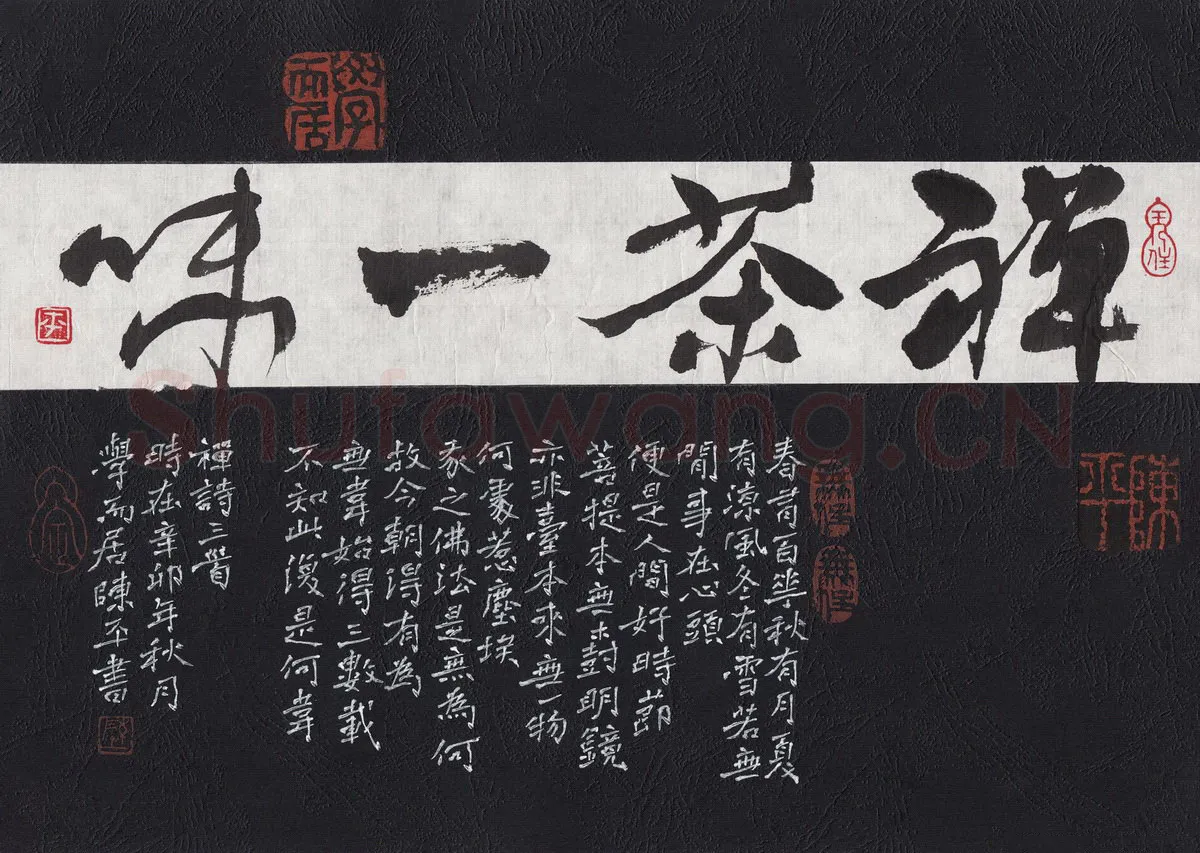 禅茶一味
春有百華秋有月夏
有涼風冬有雪若無
閒事在心頭
便是人間好時節
菩提本無樹明鏡
亦非臺本來無一物
何處惹塵埃
之佛法是無為何
故今朝得有為
無韋始得三數載
不知此復是何韋
禪詩三首
時在辛卯年秋月
學而居陳平書
學而居
陳平
Shufawang.CN